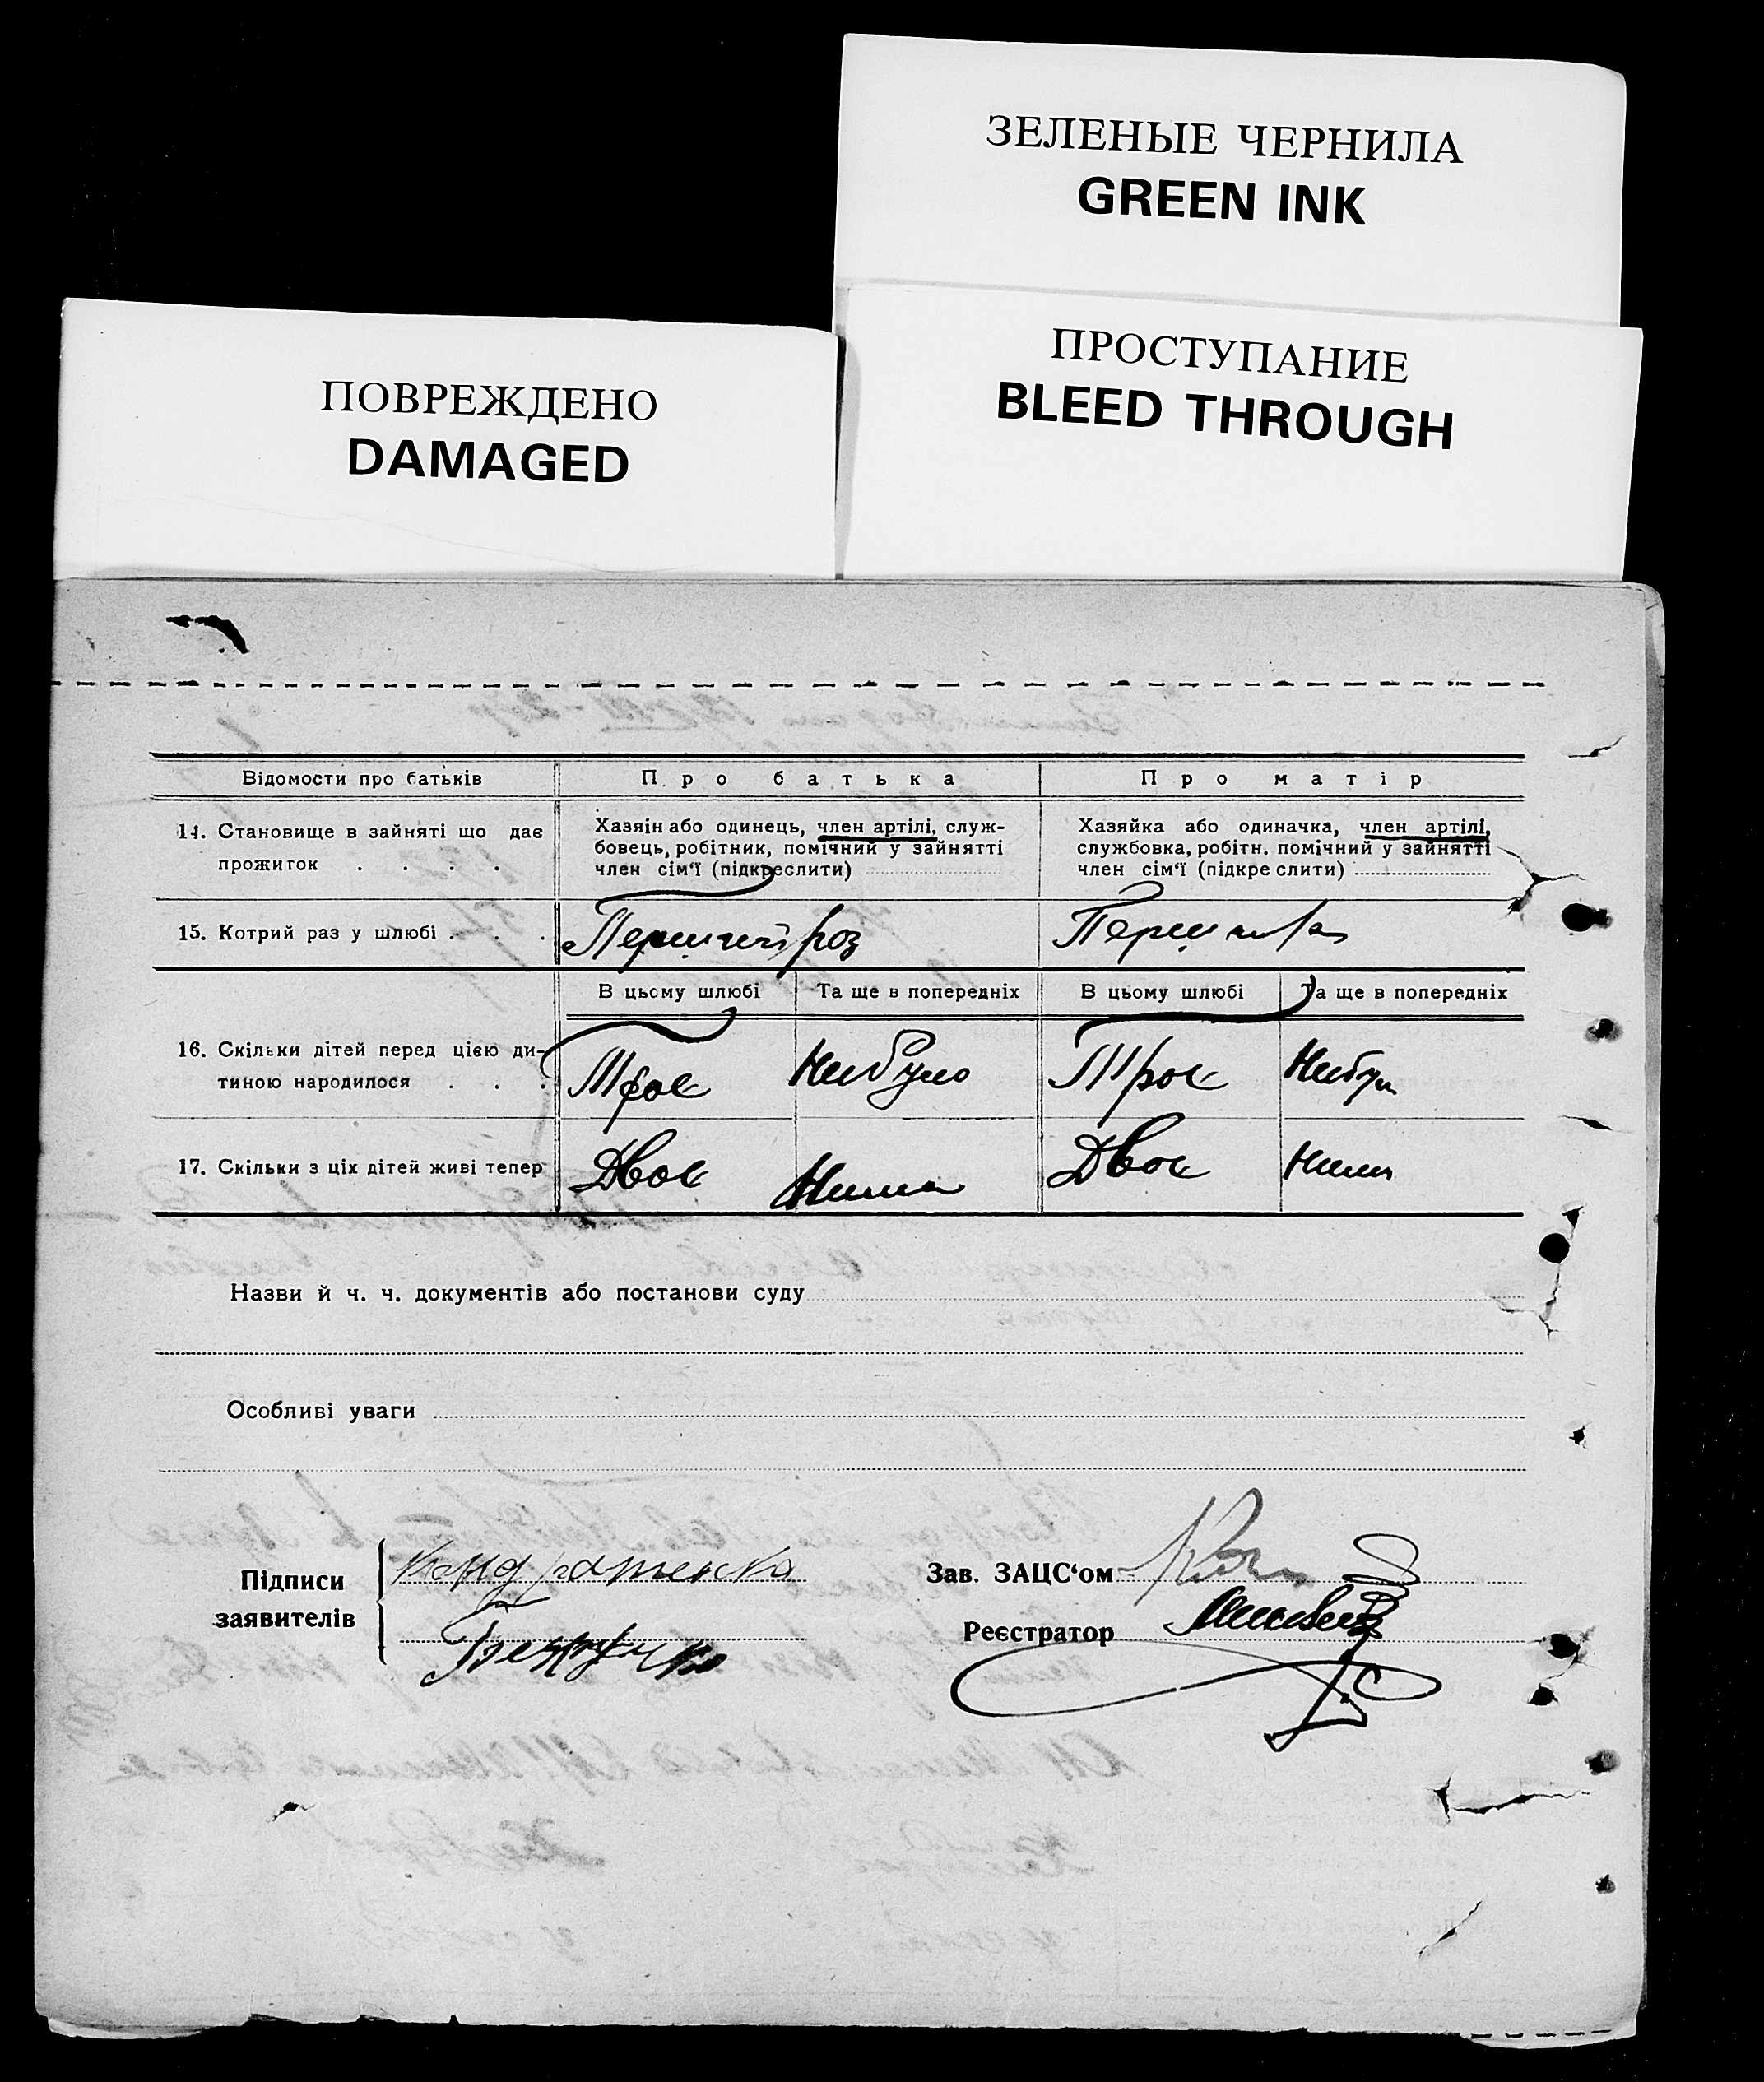 ЗЕЛЕНЫЕ ЧЕРНИЛА
GREEN INK
ПРОСТУПАНИЕ
BLEED THROUGH
ПОВРЕЖДЕНО
DAMAGED
Відомости про батьків
Про батька
Про матір
14. Становище в зайняті що дає
прожиток . . . .
Хазяін або одинець, член артілі, служ-
бовець, робітник, помічний у зайнятті
член сім‘ї (підкреслити)
Хазяйка або одиначка, член артілі,
службовка, робітн. помічний у зайнятті
член сім‘ї (підкреслити)
15. Котрий раз у шлюбі . . .
Перший раз
В цьому шлюбі
Та ще в попередніх
В цьому шлюбі
Та ще в попередніх
16. Скільки дітей перед цією ди-
тиною народилося . . .
Троє
Небуло
Троє
17. Скільки з ціх дітей живі тепер
Двоє
Нима
Двоє
Назви й ч. ч. документів або постанови суду
Особливі уваги
Підписи
заявителів
Кондратенко
Зав. ЗАЦС‘ом
Реєстратор